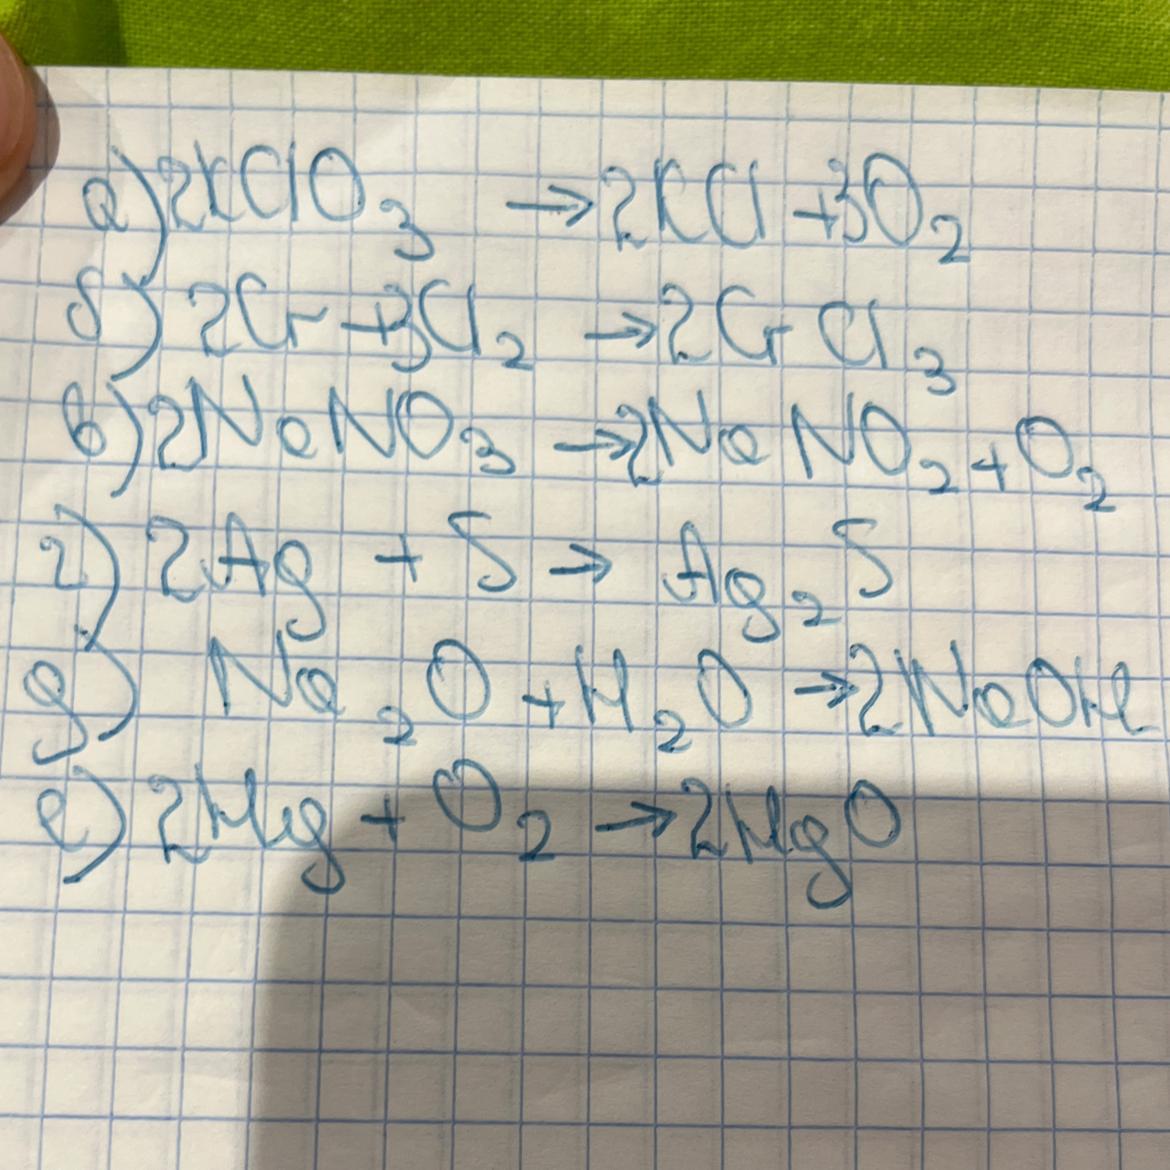 а) 2KClO₃ → 2KCl + 3O₂
б) 2Cr + 3Cl₂ → 2CrCl₃
в) 2NaNO₃ → 2NaNO₂ + O₂
г) 2Ag + S → Ag₂S
д) Na₂O + H₂O → 2NaOH
е) 2Mg + O₂ → 2MgO